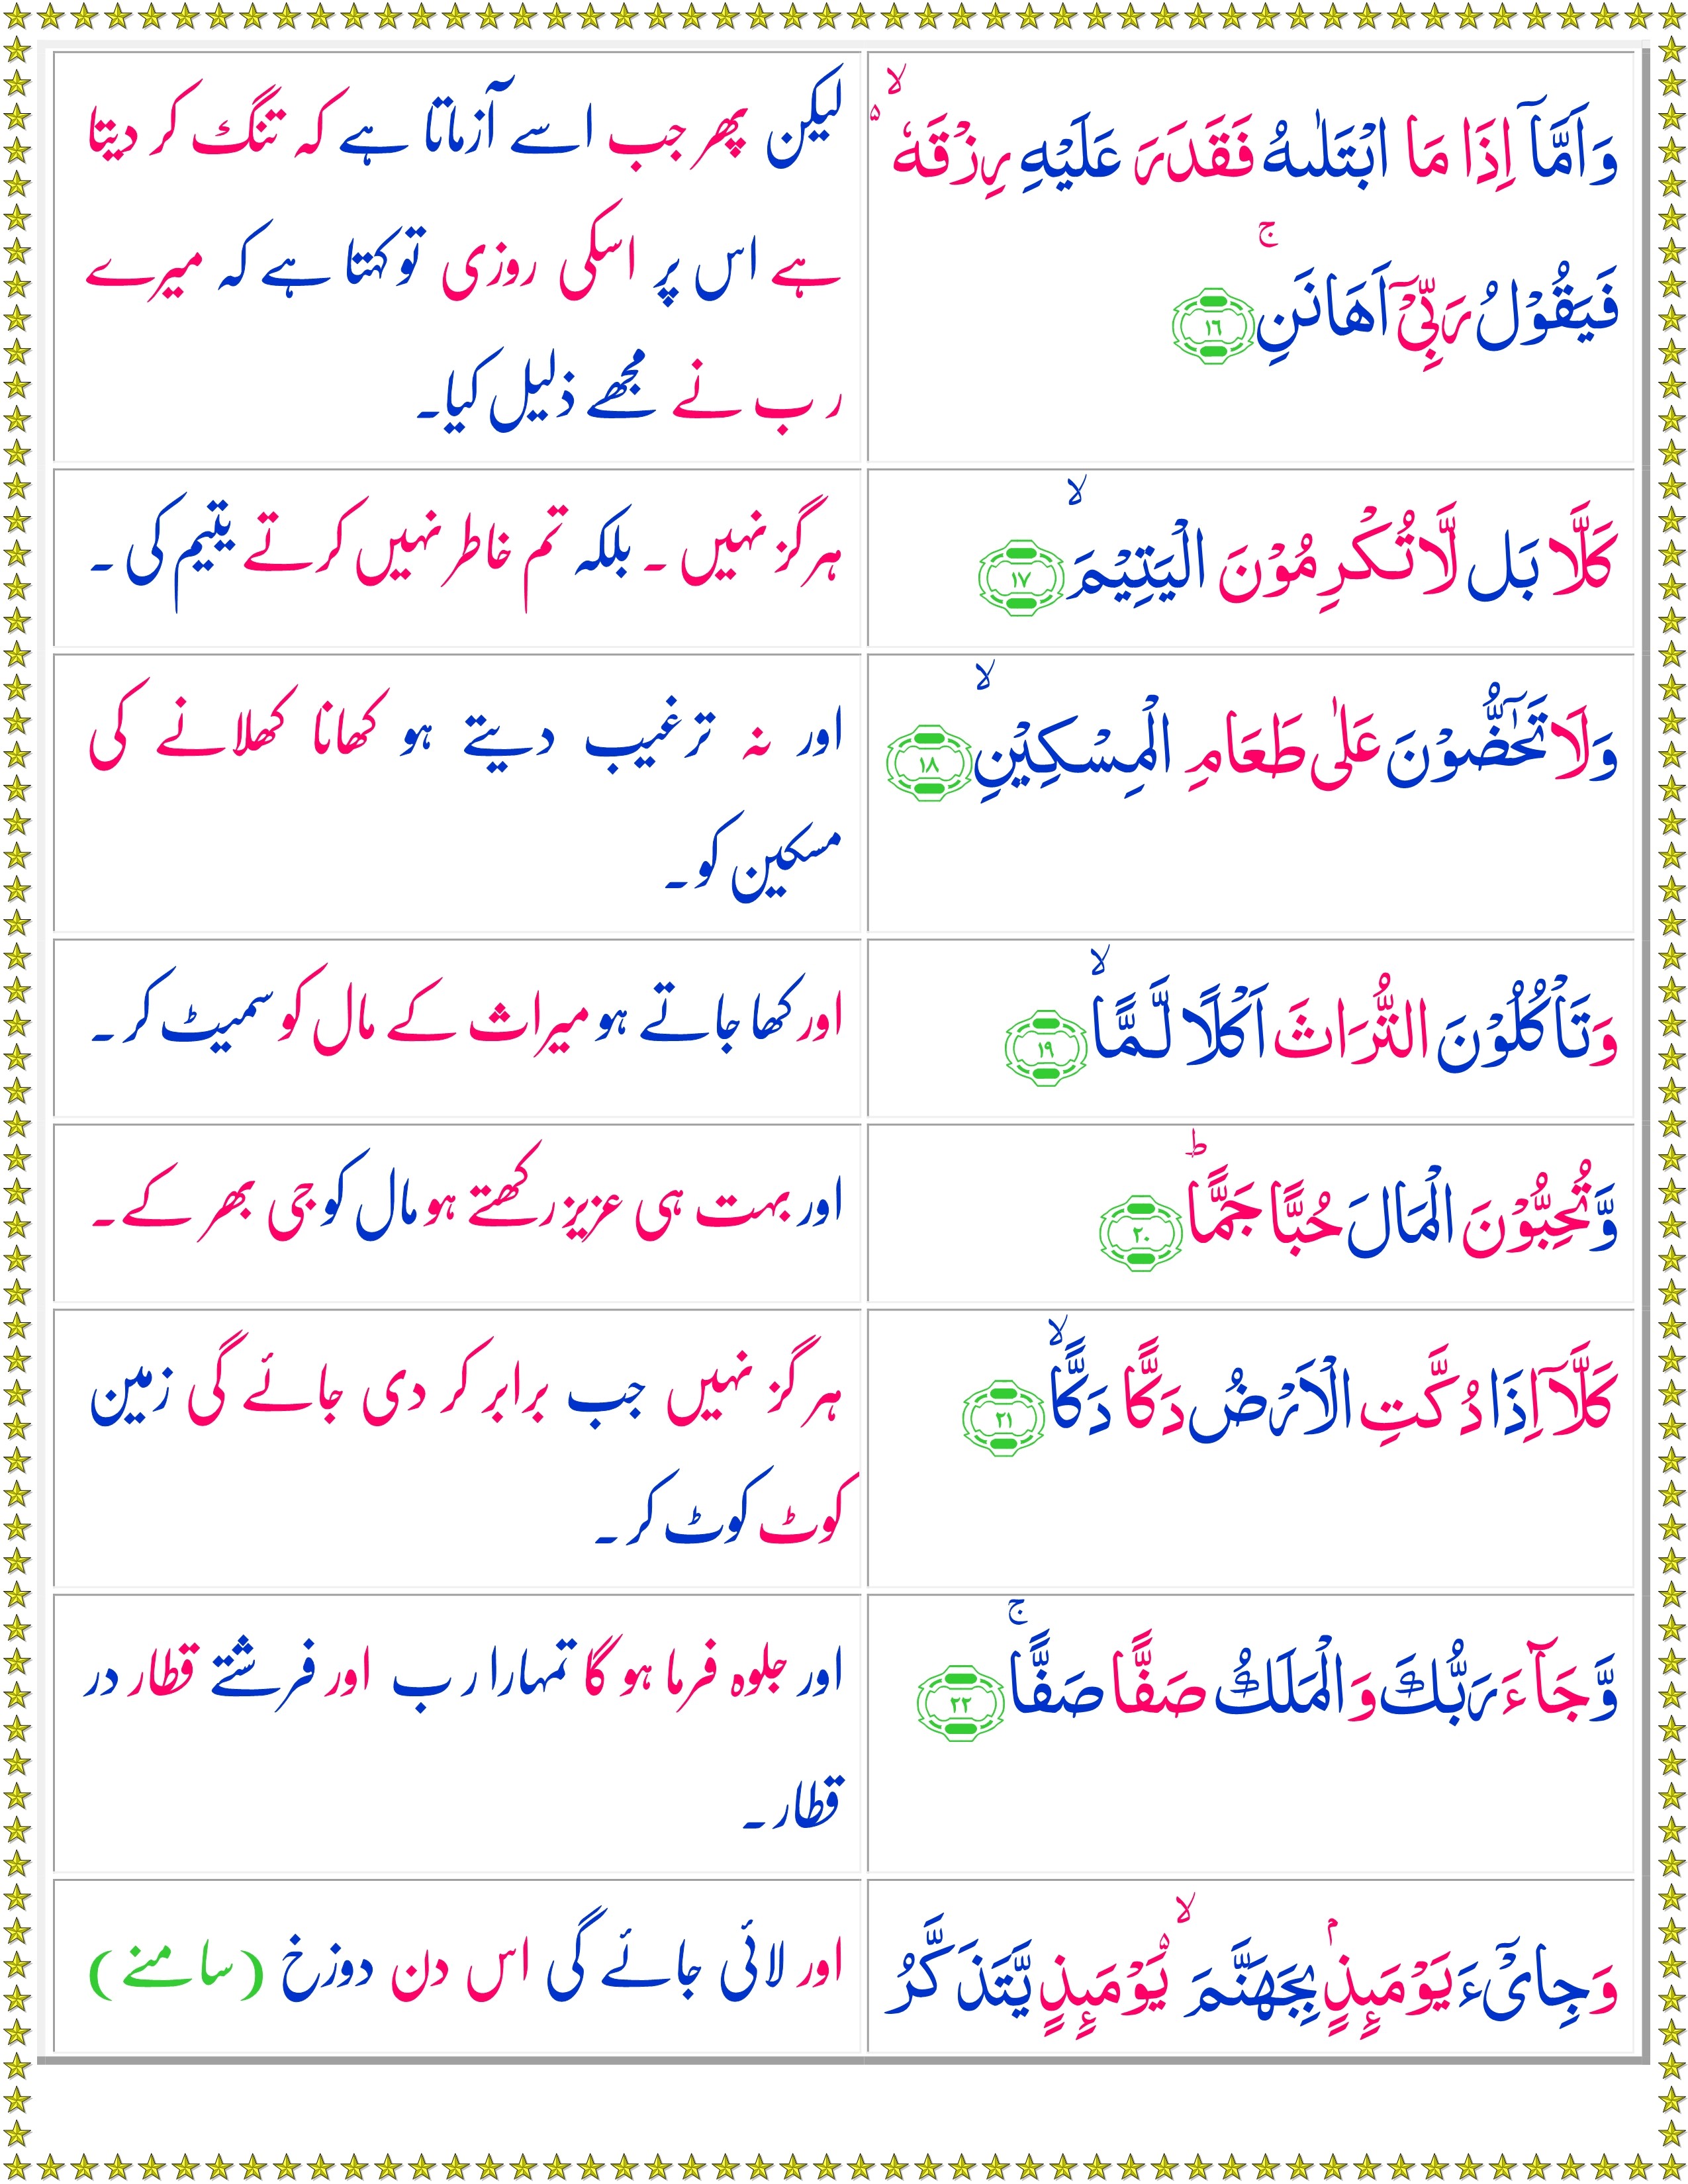 وَاَمَّاۤ اِذَا مَا ابْتَلٰىهُ فَقَدَرَ عَلَيْهِ رِزْقَهٗ ۙ۬
فَيَقُوْلُ رَبِّىْۤ اَهَانَنِ ۚ‏ ﴿۱۶﴾
لیکن پھر جب اسے آزماتا ہے کہ تنگ کر دیتا
ہے اس پر اسکی روزی تو کہتا ہے کہ میرے
رب نے مجھے ذلیل کیا۔
كَلَّا بَل لَّا تُكْرِمُوْنَ الْيَتِيْمَ ۙ‏ ﴿۱۷﴾
ہرگز نہیں ۔ بلکہ تم خاطر نہیں کرتے یتیم کی ۔
وَلَا تَحٰٓضُّوْنَ عَلٰى طَعَامِ الْمِسْكِيْنِ ۙ‏ ﴿۱۸﴾
اور نہ ترغیب دیتے ہو کھانا کھلانے کی
مسکین کو۔
وَتَاْكُلُوْنَ التُّرَاثَ اَكْلًا لَّـمًّا ۙ‏ ﴿۱۹﴾
اور کھا جاتے ہو میراث کے مال کو سمیٹ کر۔
وَّتُحِبُّوْنَ الْمَالَ حُبًّا جَمًّا ؕ‏ ﴿۲۰﴾
اور بہت ہی عزیز رکھتے ہو مال کو جی بھر کے۔
كَلَّاۤ اِذَا دُكَّتِ الْاَرْضُ دَكًّا دَكًّا ۙ‏ ﴿۲۱﴾
ہرگز نہیں جب برابر کر دی جائے گی زمین
کوٹ کوٹ کر۔
وَّجَآءَ رَبُّكَ وَالْمَلَكُ صَفًّا صَفًّا ۚ‏ ﴿۲۲﴾
اور جلوہ فرما ہو گا تمہارا رب اور فرشتے قطار در
قطار۔
وَجِاىْٓءَ يَوْمَٮِٕذٍۢ بِجَهَنَّمَ ۙ يَوْمَٮِٕذٍ يَّتَذَكَّرُ
اور لائی جائے گی اس دن دوزخ (سامنے)